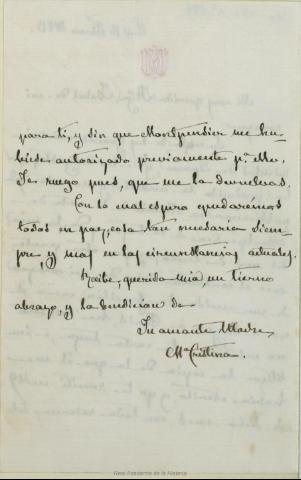 para ti, y sin que Montpensier me hu-
biese autorizado previamente p.ª ello.
Te ruego pues, que me la devuelvas.
Con lo cual espero quedaremos
todos en paz, cosa tan necesaria siem-
pre, y mas en las circunstancias actuales.
Recibe, querida mia, un tierno
abrazo, y la bendicion de
Tu amante Madre,
Mª Cristina.
Real Academia de la Historia